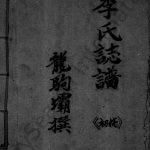 李氏誌譜
龍駒壩撰
《初修》